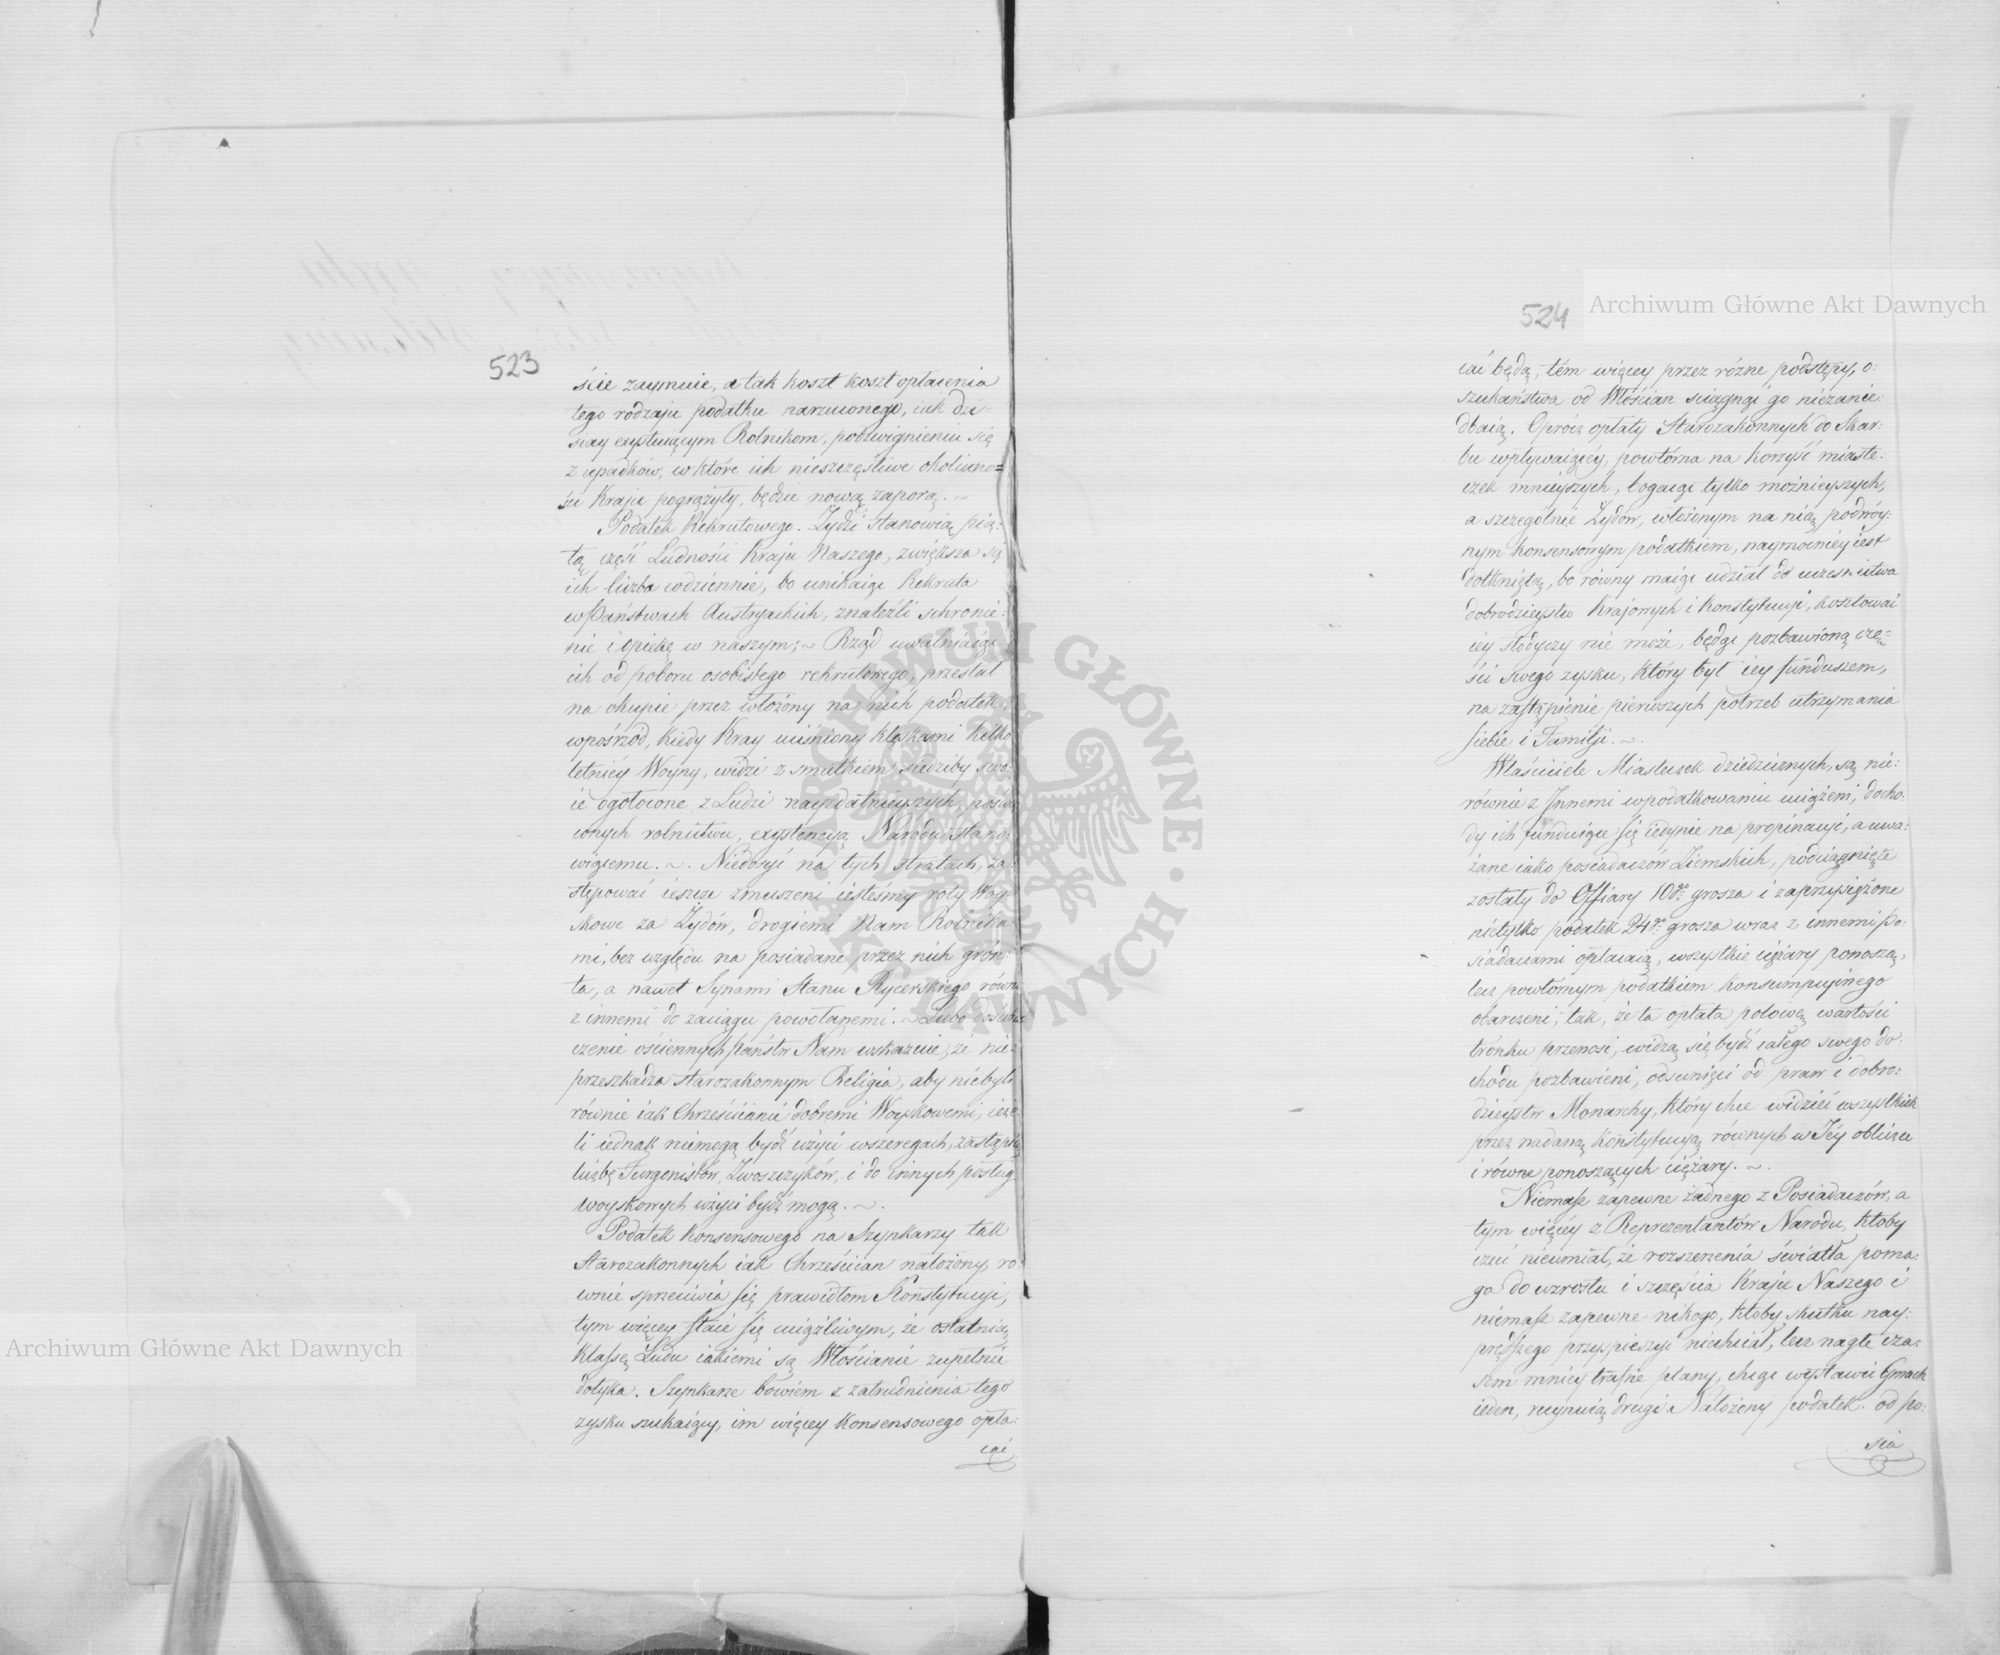 523
ście zaymuie, a tak koszt koszt opłacenia
tego rodzaju podatku narzuconego, iak dzi-
siay exystuiącym Rolnikom, podzwignieniu się
z upadków, w które ich nieszczęśliwe okoliczno=
ści Kraju pogrążyły, będzie nową zaporą. ~
Podatek Rekrutowego. Żydzi stanowią pią:
tą część Ludności Kraju Naszego, zwiększa się
ich liczba codziennie, bo unikaiąc Rekruta
w Państwach Austryackich, znaleźli schronie:
nie i opiekę w naszym; ~ Rząd uwalniaiąc
ich od poboru osobistego rekrutowego, przestał
na okupie przez włożony na nich podatek,
wpośrzód, kiedy Kray uciśniony klęskami kilko
letniéy Woyny, widzi z smutkiem siedziby swo:
ie ogołocone z Ludzi nayzdatnieyszych, poświę
conych rolnictwu, exystencyą Narodu stano:
wiącemu. ~. Niedosyć na tych stratach, za:
stępować ieszcze zmuszeni iesteśmy roty Woy
skowe za Żydów, drogiemi Nam Rolnika:
mi, bez względu na posiadane przez nich grón:
ta, a nawet Synami Stanu Rycerskiego równo
z innemi do zaciągu powołanemi. ~ Lubo doświad
czenie ościennych państw Nam wskazuie, że nie:
przeszkadza starozakonnym Religia, aby niebyli
równie iak Chrześcianie dobremi Woyskowemi, ieże:
li iednak niemogą bydź użyci wszeregach, zastąpić
liczbę Furgonistów, Zwoszczyków, i do innych posług
woyskowych użyci bydź mogą. ~.
Podatek Konsensowego na Szynkarzy tak
Starozakonnych iak Chrześcian nałożony, ró:
wnie sprzeciwia się prawidłom Konstytucyi,
tym więcey staie się uciążliwym, że ostatnią
klassę Ludu iakiemi są Włościanie zupełnie
dotyka. Szynkarze bowiem z zatrudnienia tego
zysku szukaiący, im więcey Konsensowego opła:
cać
524
cać będą, tém więcey przez różne podstępy, o:
szukaństwa od Włościan ściągnąć go niezanie:
dbaią. Oprócz opłaty Starozakonnych do Skar:
bu wpływaiącéy, powtórna na korzyść miaste:
czek mnieyszych, bogacąc tylko możnieyszych,
a szczególnie Żydów, włożonym na nią podwóy:
nym konsensowym podatkiem, naymocniéy iest
dotkniętą, bo równy maiąc udział do uczesnictwa
dobrodzieystw Krajowych i Konstytucyi, kosztować
iéy słodyczy nie może, będąc pozbawioną czę=
ści swego zysku, który był iéy funduszem,
na zastąpienie pierwszych potrzeb utrzymania
siebie i Familji. ~.
Właściciele Miasteczek dziedzicznych, są nie:
równie z Innemi wpodatkowaniu uciążeni, docho:
dy ich funduiące się iedynie na propinacyi, a uwa:
żane iako posiadaczów Ziemskich, pociągnięte
zostały do Offiary 10go grosza i zaprzysiężone
nietylko podatek 24go grosza wraz z innemi po:
siadaczami opłacaią, wszystkie ciężary ponoszą,
lecz powtórnym podatkiem Konsumpcyjnego
obarczeni, tak, że ta opłata połowę wartości
trónku przenosi, widzą się bydź całego swego do:
chodu pozbawieni, odsunięci od praw i dobro:
dzieystw Monarchy, który chce widzieć wszystkich
przez nadaną Konstytucyą równych w Jéy obliczu
i równe ponoszących ciężary. ~.
Niemasz zapewne żadnego z Posiadaczów, a
tym więcéy z Reprezentantów Narodu, ktoby
czuć nieumiał, że rozszerzenia światła poma:
ga do wzrostu i szczęścia Kraju Naszego i
niemasz zapewne nikogo, ktoby skutku nay:
prędszego przyspieszyć niechciał, lecz nagłe cza:
sem mniey trafne plany, chcąc wystawić Gmach
ieden, ruynuią drugi. Nałożony podatek od po:
sia
Archiwum Główne Akt Dawnych
Archiwum Główne Akt Dawnych
ARCHIWUM GŁÓWNE AKT DAWNYCH